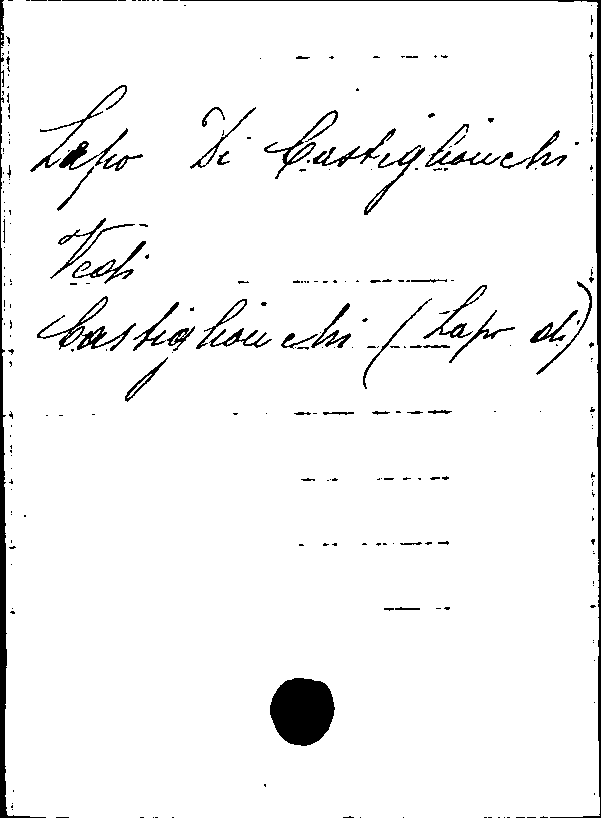 Lapo Di Castiglionchi
Vedi
Castiglionchi (Lapo di)